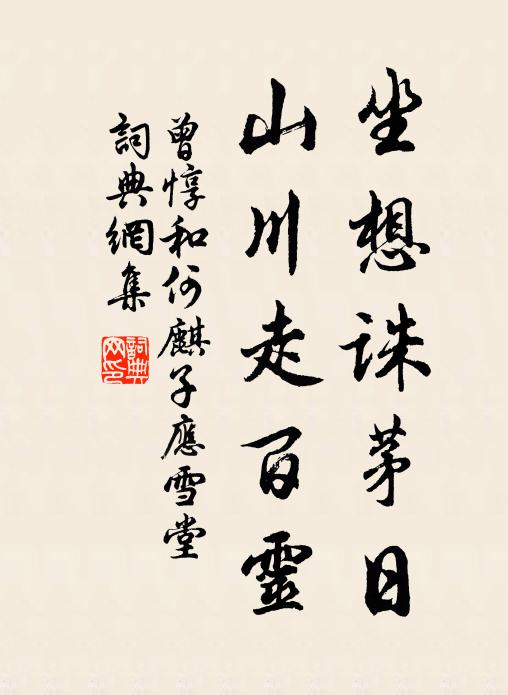 坐想誅茅日
山川走百靈
曾惇和何麒子應雪堂
詞典網集
詞典網印